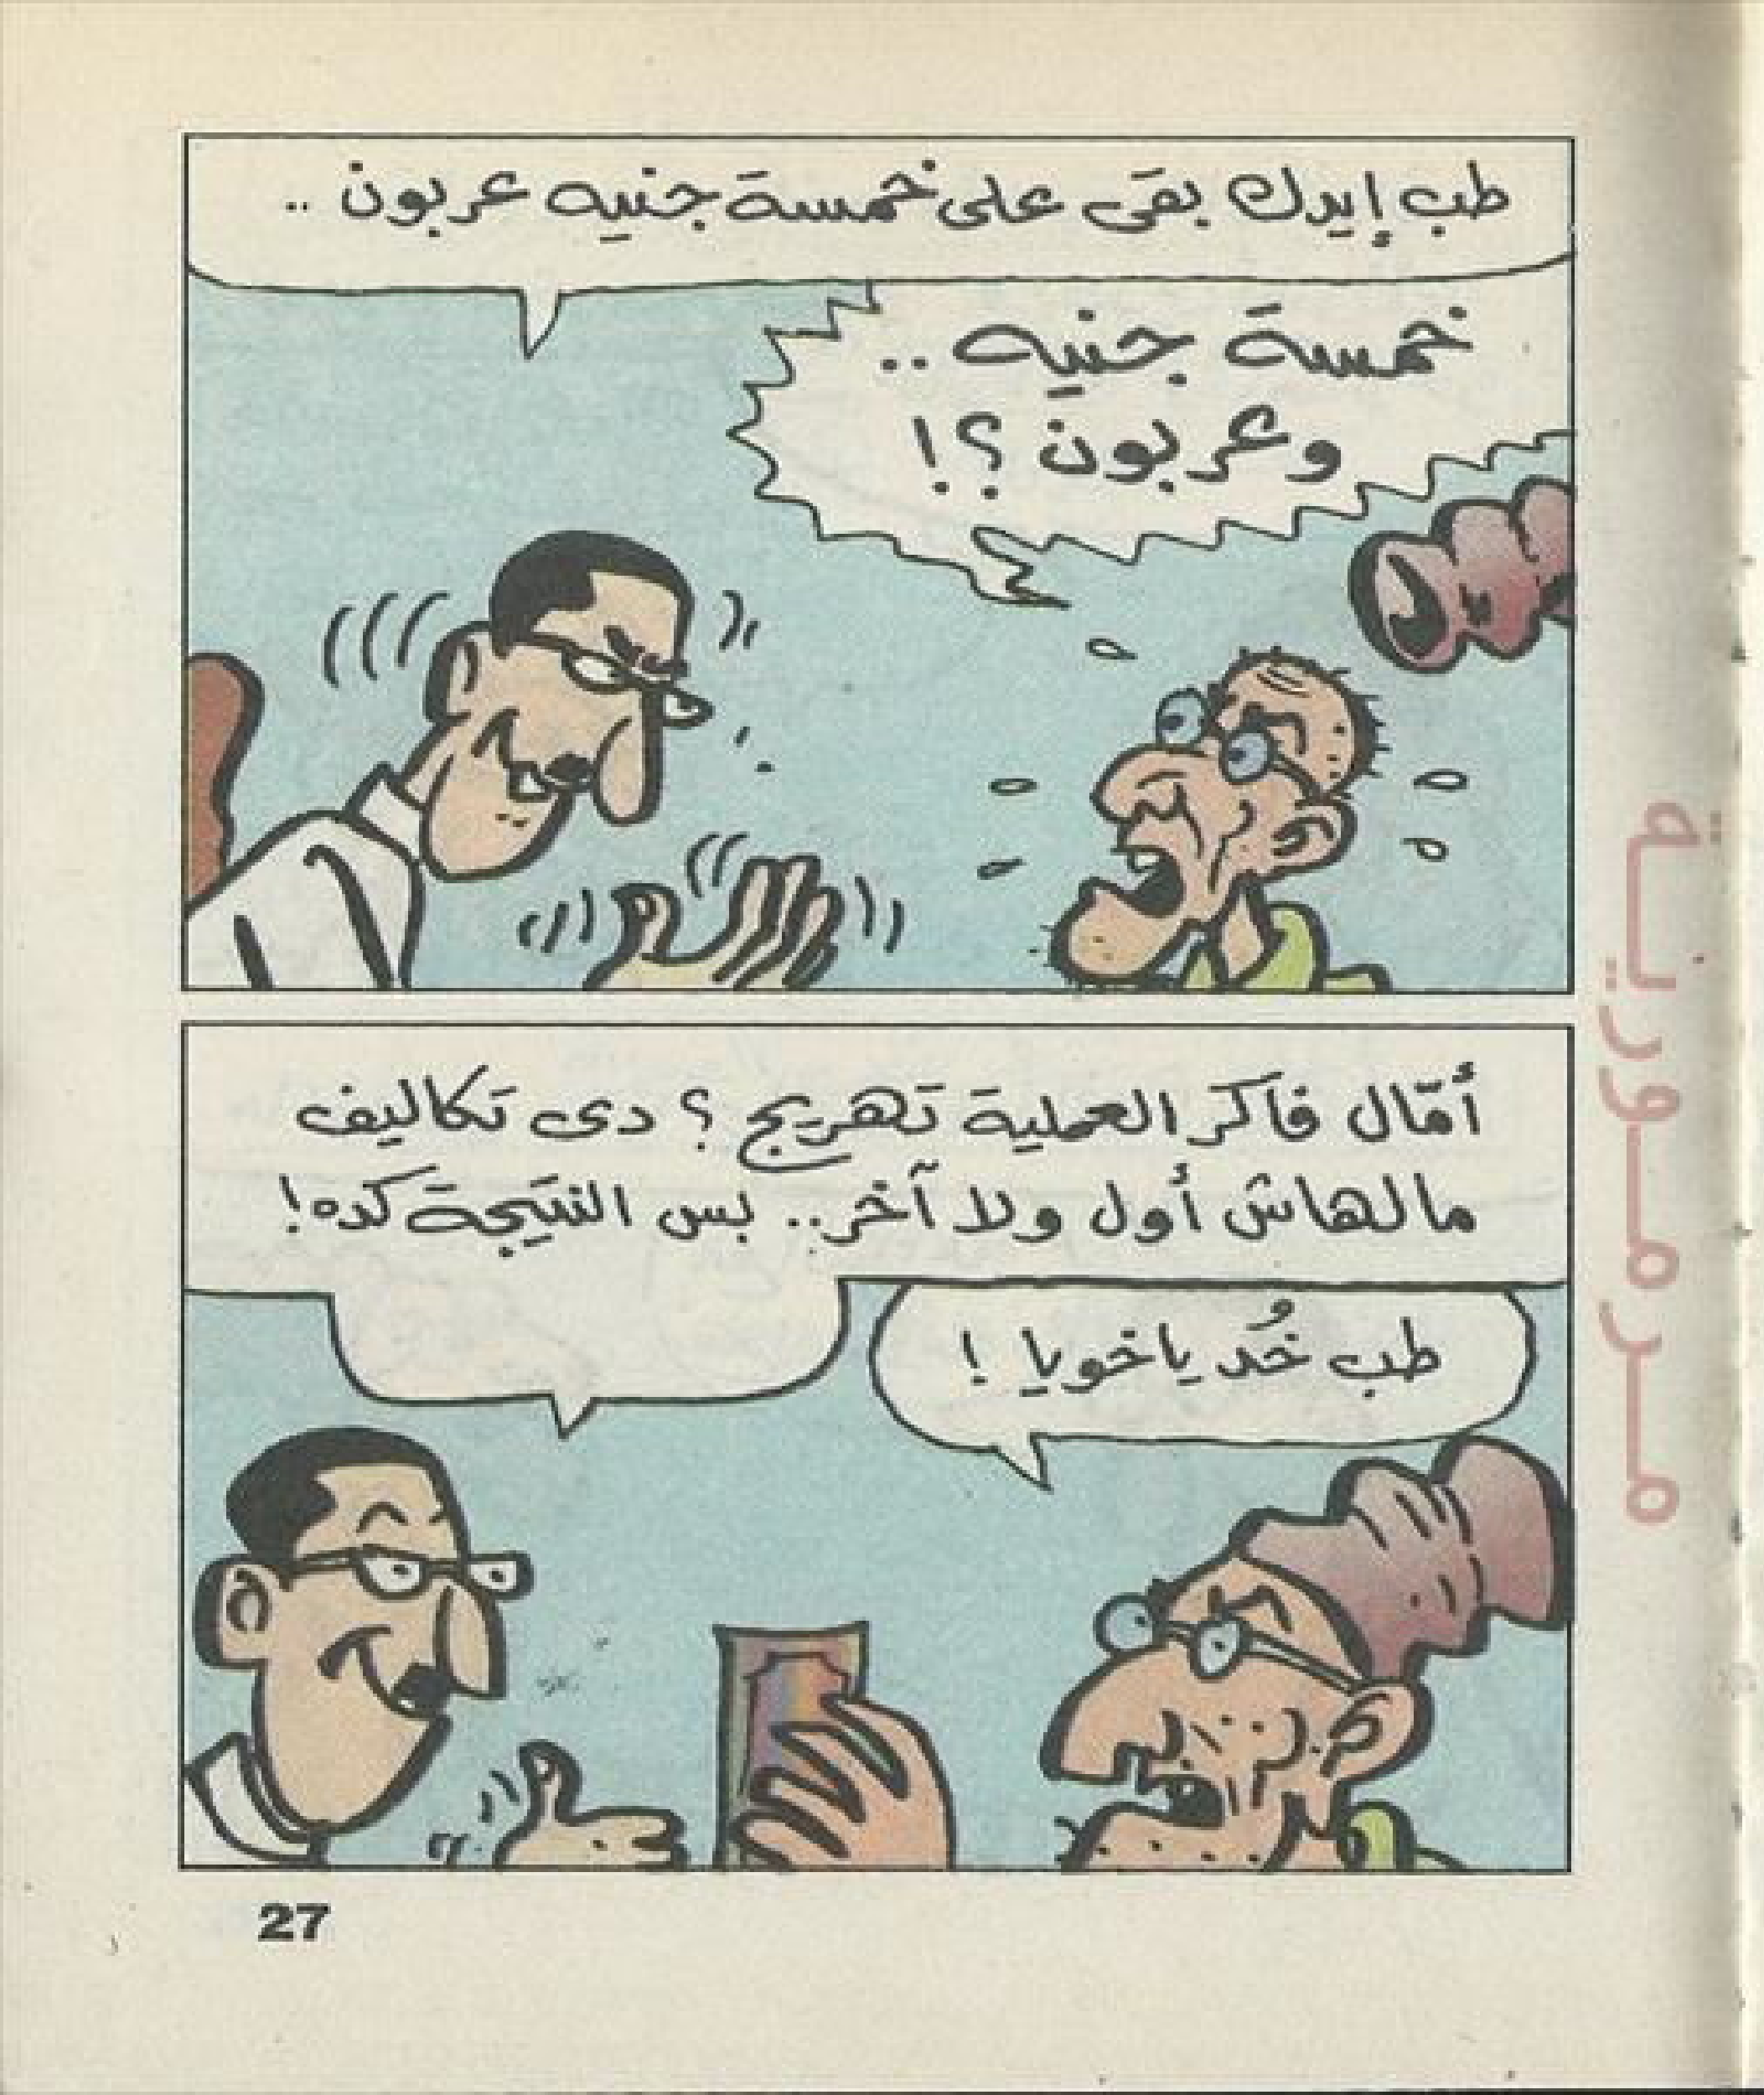 طب إيدك بقى على خمسة جنيه عربون ..
خمسة جنيه ..
وعربون ؟!
أمّال فاكر العملية تهريج ؟ دى تكاليف
مالهاش أول ولا آخر .. بس النتيجة كده !
طب خُد ياخويا !
27
مرمورية